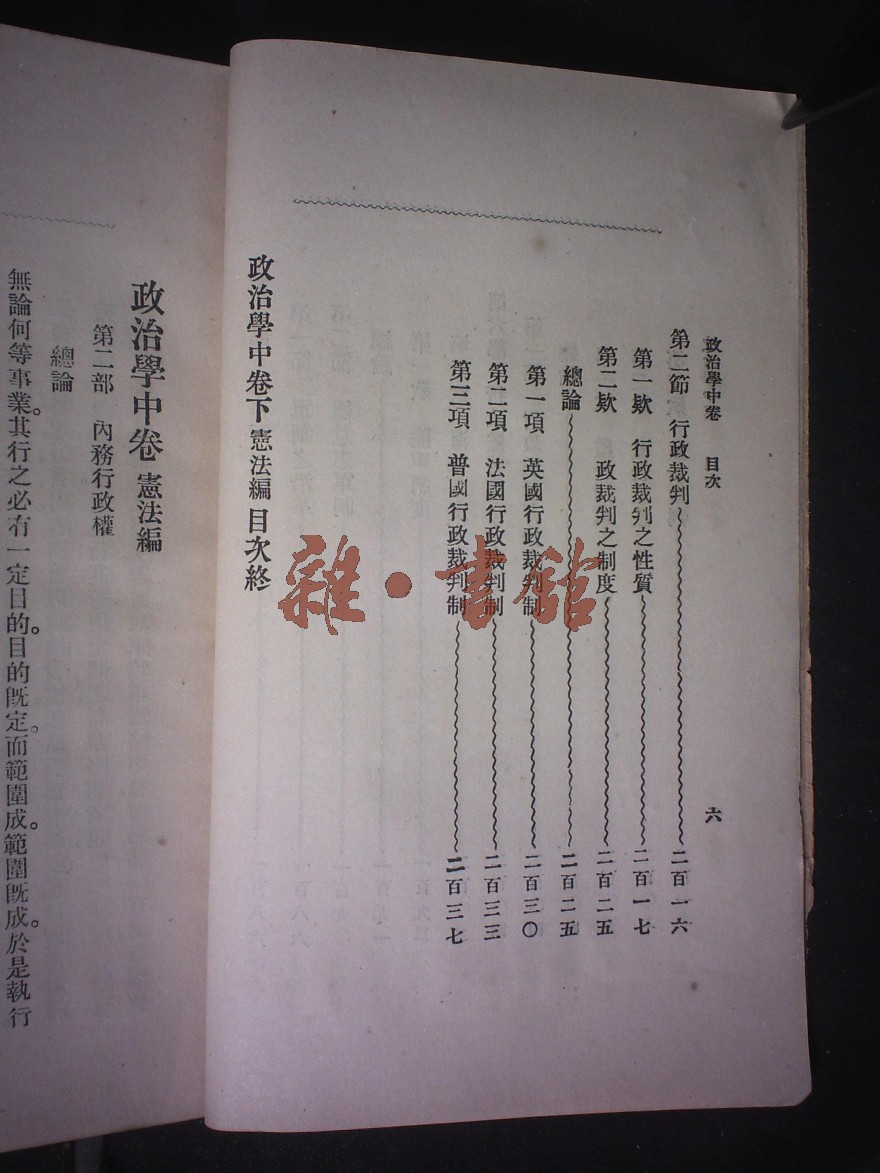 政治學中卷 目次 六
第二節 行政裁判 二百一六
第一欵 行政裁判之性質 二百一七
第二欵 政裁判之制度 二百二五
總論 二百二五
第一項 英國行政裁判制 二百三〇
第二項 法國行政裁判制 二百三三
第三項 普國行政裁判制 二百三七
政治學中卷下 憲法編 目次終
政治學中卷 憲法編
第二部 內務行政權
總論
無論何等事業。其行之必有一定目的。目的旣定。而範圍成。範圍旣成。於是執行
雜·書館